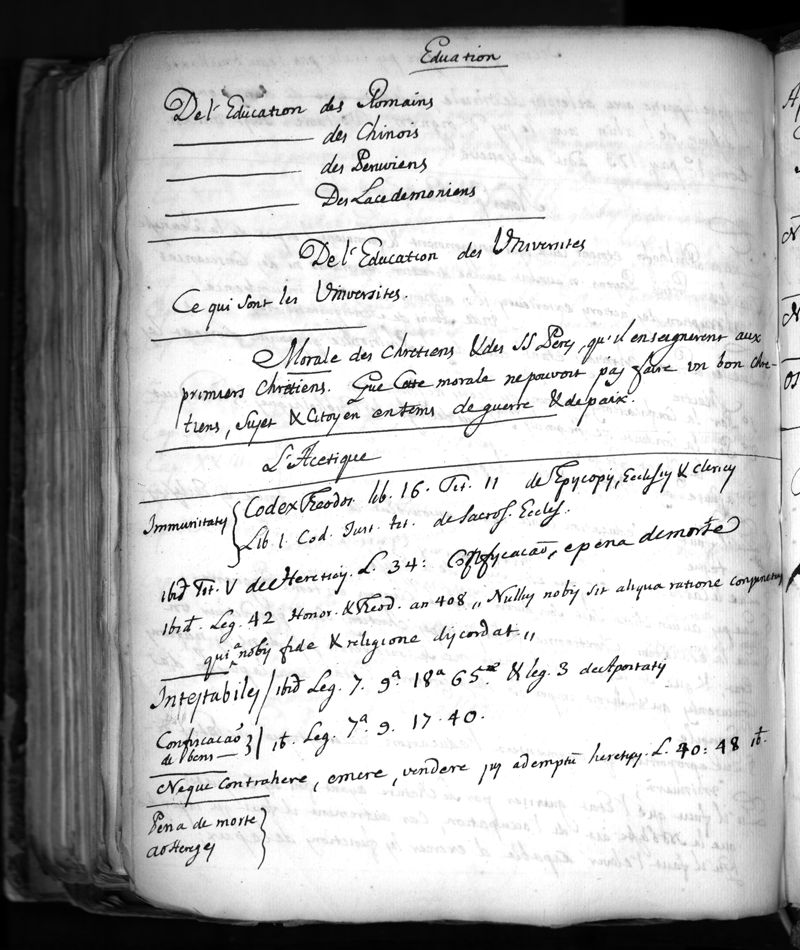 Eduation
De l' Education des Romains
des Chinois
des Peruviens
Des Lacedemoniens
De l' Education des Universites
Ce qui sont les Universites.
Morale des Chretiens & des SS Peres, qu'il enseignerent aux
primiers Chrètiens. Que Cette morale ne pouvoit pas faire un bon Chre-
tiens, Sujet & Citoyen en tems de guerre & de paix.
L'Acetique
Immunitates { Codex Theodos. lib. 16. Tit. 11 de Episcopis, Ecclesis & Clericis
Lib. 1. Cod. Just. tit. de Sacros. Eccles.
ibid Tit. V de Hereticis. L. 34: Confiscacaõ, e pena de morte
ibid. Leg. 42 Honor. & Theod. an 408 „ Nullus nobis sit aliqua ratione conjunctus
qui a nobis fide & religione discordat „
Intestabiles / ibid Leg. 7. 9a. 18a 65. & leg. 3 de Apostatis
Confiscacaõ
de bens } | it. Leg. 7a 9. 17. 40.
Neque Contrahere, emere, vendere jus ademptũ hereticis. L. 40: 48 it.
Pena de morte
ao Hereges }